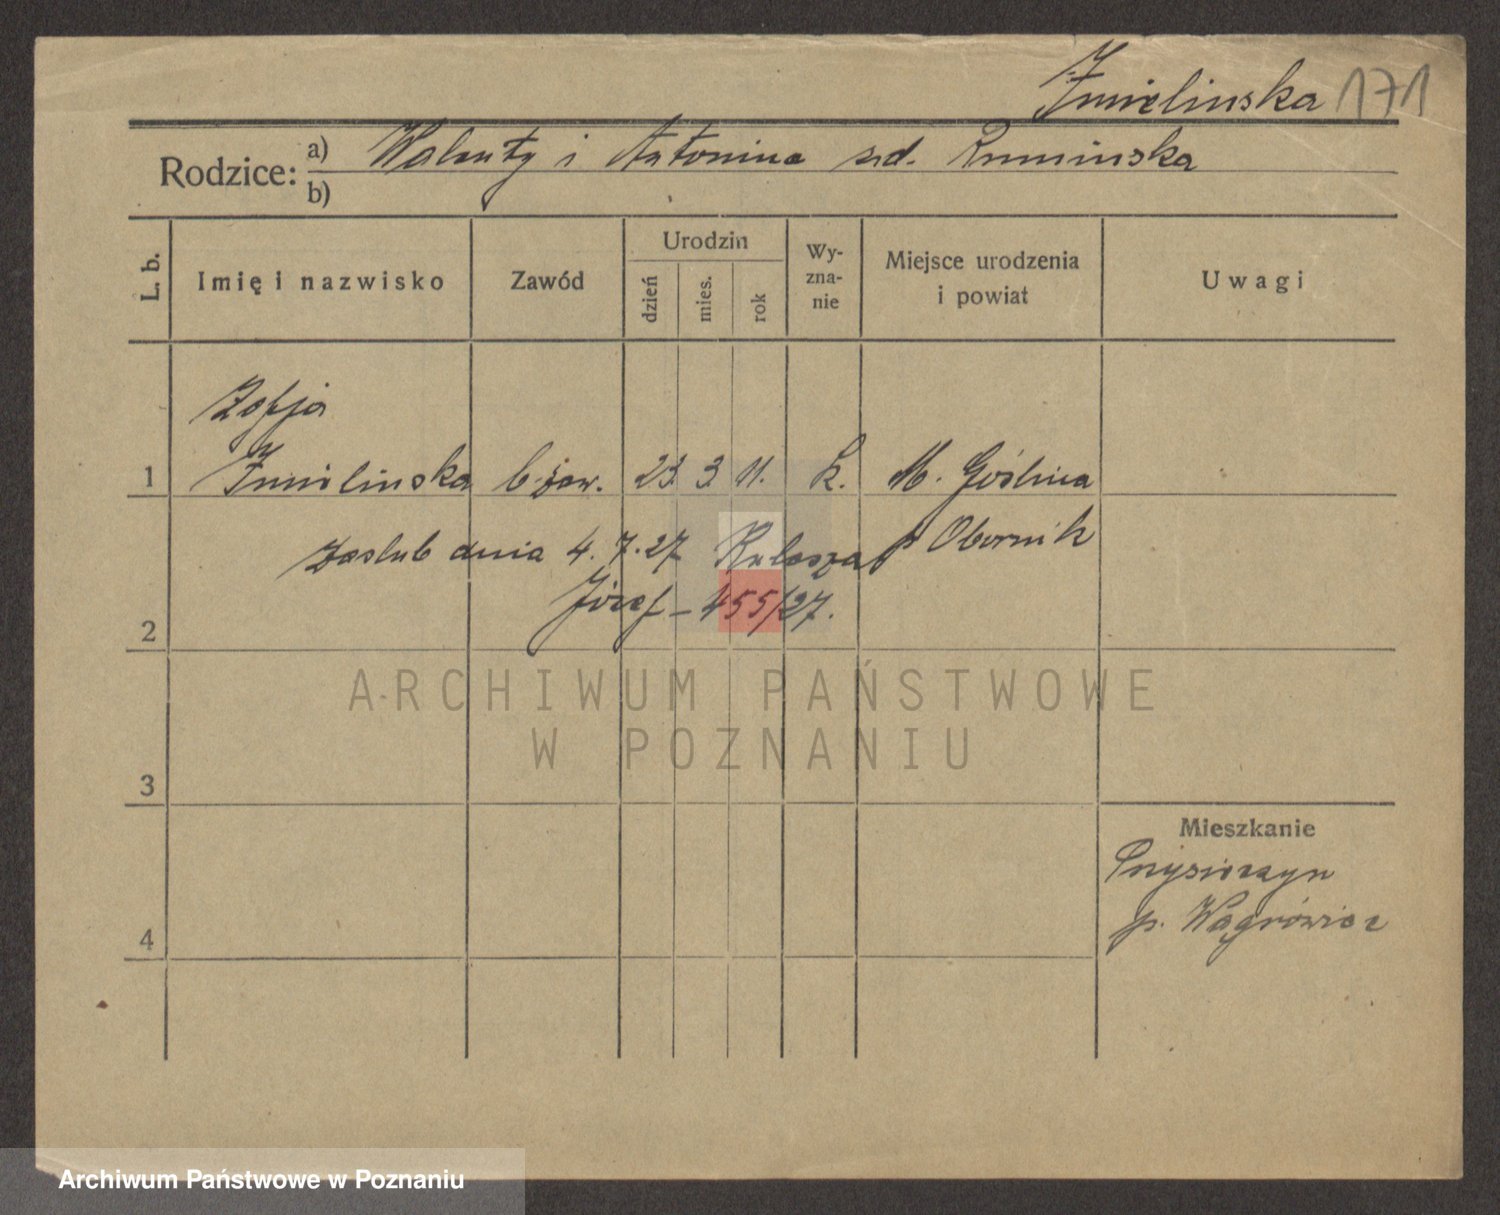 Żmielinska 171
Rodzice: a) Walenty i Antonina zd. Rumińska
b)
L. b. Imię i nazwisko Zawód Urodzin dzień mies. rok Wyznanie Miejsce urodzenia i powiat Uwagi
Zofja
1 Żmielinska b. zaw. 23 3 11. k. M. Goślina
p Obornik
zaślub dnia 4. 7. 27
Józef – 455/27.
2
3
4
Mieszkanie
Przysieczyn
p. Wągrówiec
ARCHIWUM PAŃSTWOWE
W POZNANIU
Archiwum Państwowe w Poznaniu